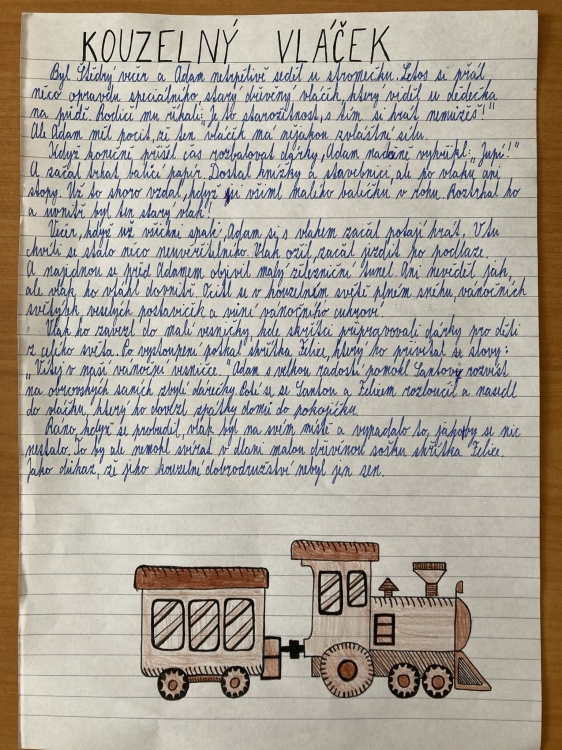 KOUZELNÝ VLÁČEK
Byl Štědrý večer a Adam netrpělivě seděl u stromečku. Letos si přál
něco opravdu speciálního, starý dřevěný vláček, který viděl u dědečka
na půdě. Rodiče mu říkali: „Je to starožitnost, s tím si hrát nemůžeš!"
Ale Adam měl pocit, že ten vláček má nějakou zvláštní sílu.
Když konečně přišel čas rozbalovat dárky, Adam nadšeně vykřikl: „Jupí!"
A začal trhat balící papír. Dostal knížky a stavebnici, ale po vlaku ani
stopy. Už to skoro vzdal, když si všiml malého balíčku v rohu. Roztrhal ho
a uvnitř byl ten starý vlak!
Večer, když už všichni spali, Adam si s vlakem začal potají hrát. V tu
chvíli se stalo něco neuvěřitelného. Vlak ožil, začal jezdit po podlaze.
A najednou se před Adamem objevil malý železniční tunel. Ani nevěděl jak,
ale vlak ho vtáhl dovnitř. Ocitl se v kouzelném světě plném sněhu, vánočních
světýlek, veselých postaviček a vůní vánočního cukroví.
Vlak ho zavezl do malé vesničky, kde skřítci připravovali dárky pro děti
z celého světa. Po vystoupení potkal skřítka Felixe, který ho přivítal se slovy:
„Vítej v naší vánoční vesničce." Adam s velkou radostí pomohl Santovy rozvést
na obrovských saních zbylé dárečky. Poté se se Santou a Felixem rozloučil a nasedl
do vláčku, který ho dovezl zpátky domů do pokojíčku.
Ráno, když se probudil, vlak byl na svém místě a vypadalo to, jakoby se nic
nestalo. To by ale nemohl svírat v dlani malou dřevěnou sošku skřítka Felixe.
Jako důkaz, že jeho kouzelné dobrodružství nebyl jen sen.